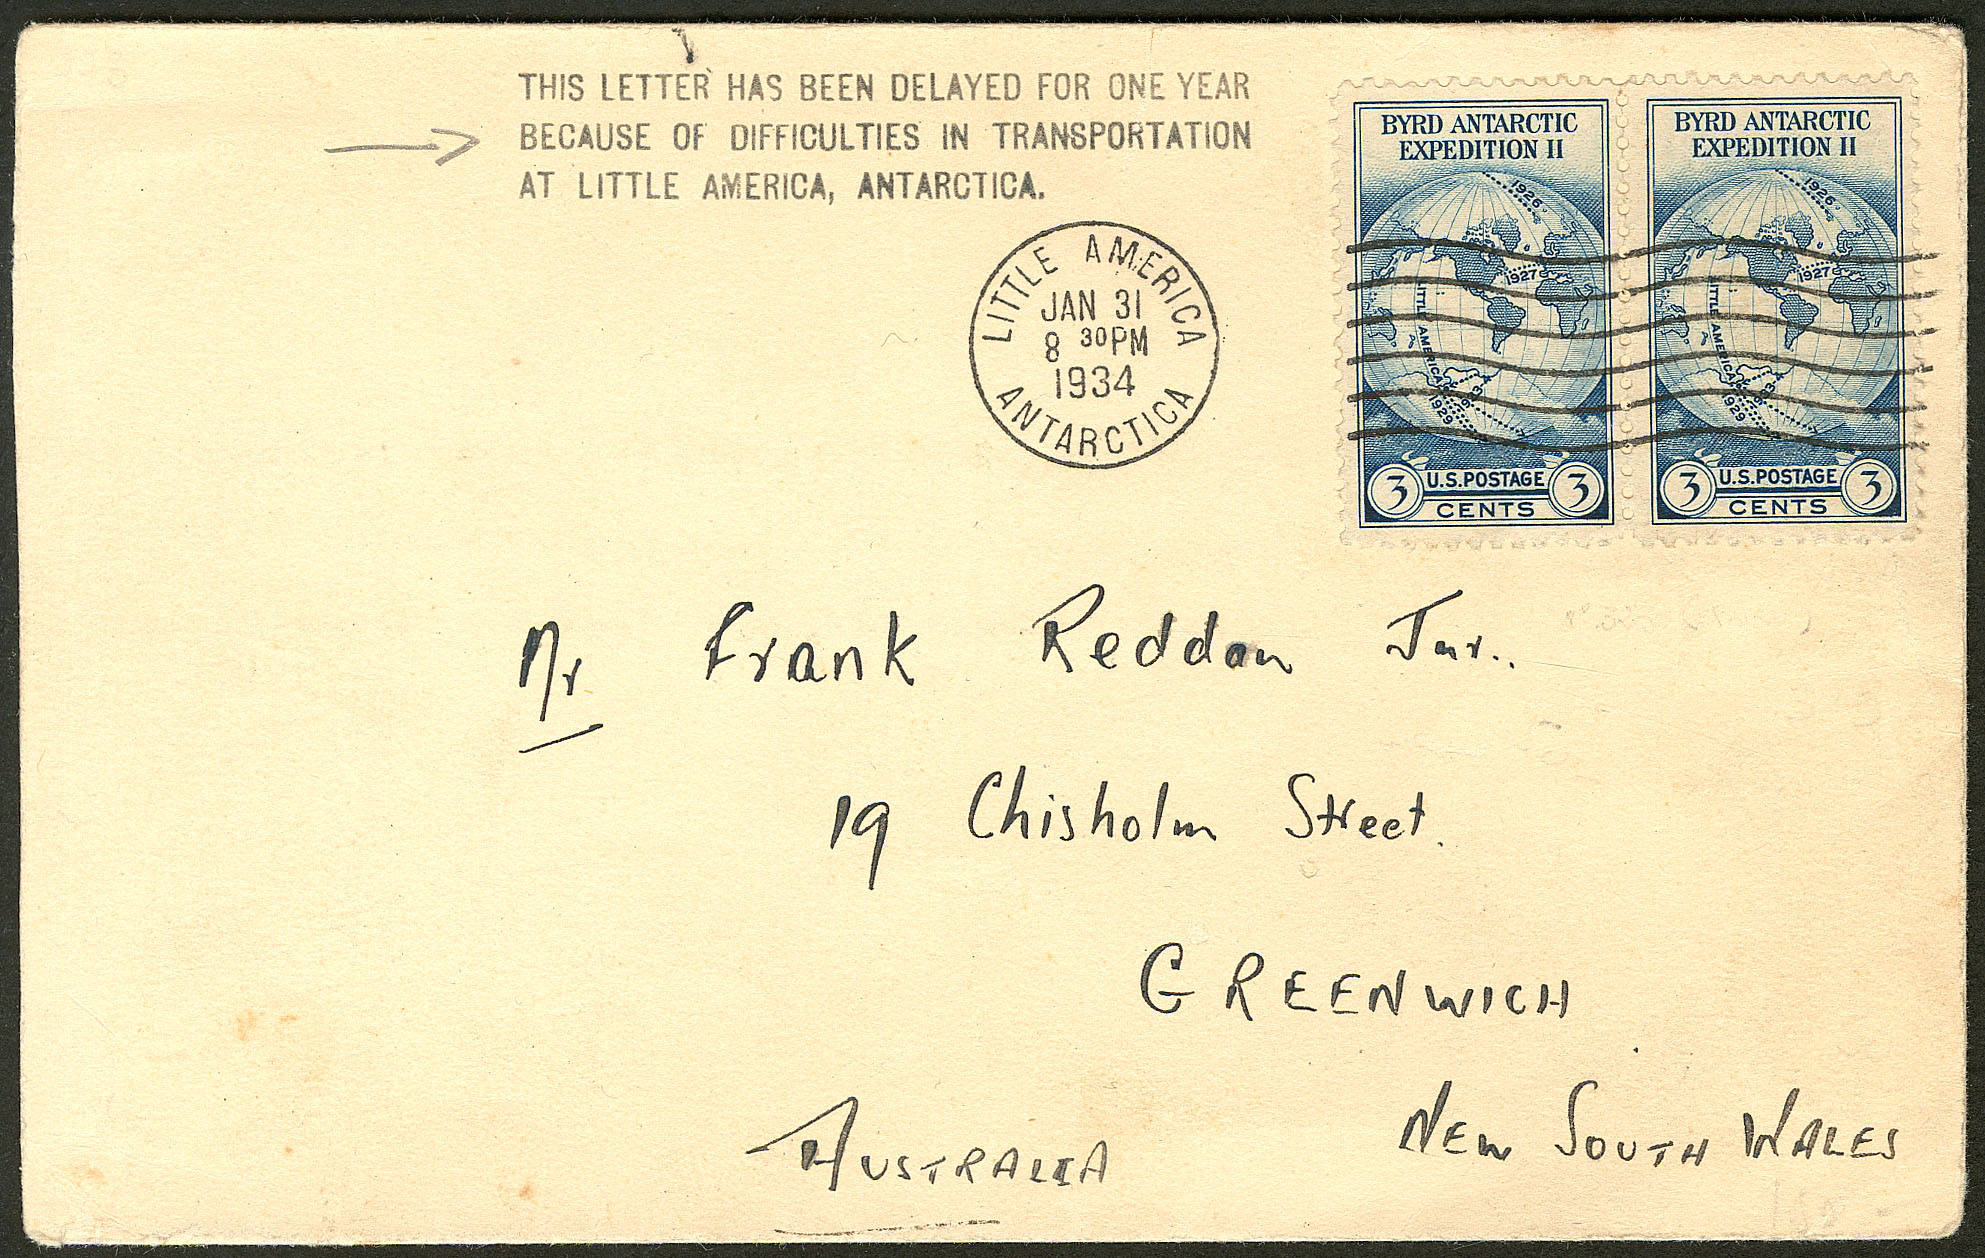 THIS LETTER HAS BEEN DELAYED FOR ONE YEAR
BECAUSE OF DIFFICULTIES IN TRANSPORTATION
AT LITTLE AMERICA, ANTARCTICA.
LITTLE AMERICA
JAN 31
8 30PM
1934
ANTARCTICA
BYRD ANTARCTIC
EXPEDITION II
1926
1927
LITTLE AMERICA
1929
U.S.POSTAGE
3 3
CENTS
BYRD ANTARCTIC
EXPEDITION II
1926
1927
LITTLE AMERICA
1929
U.S.POSTAGE
3 3
CENTS
Mr Frank Reddan Jnr..
19 Chisholm Street.
GREENWICH
NEW SOUTH WALES
AUSTRALIA